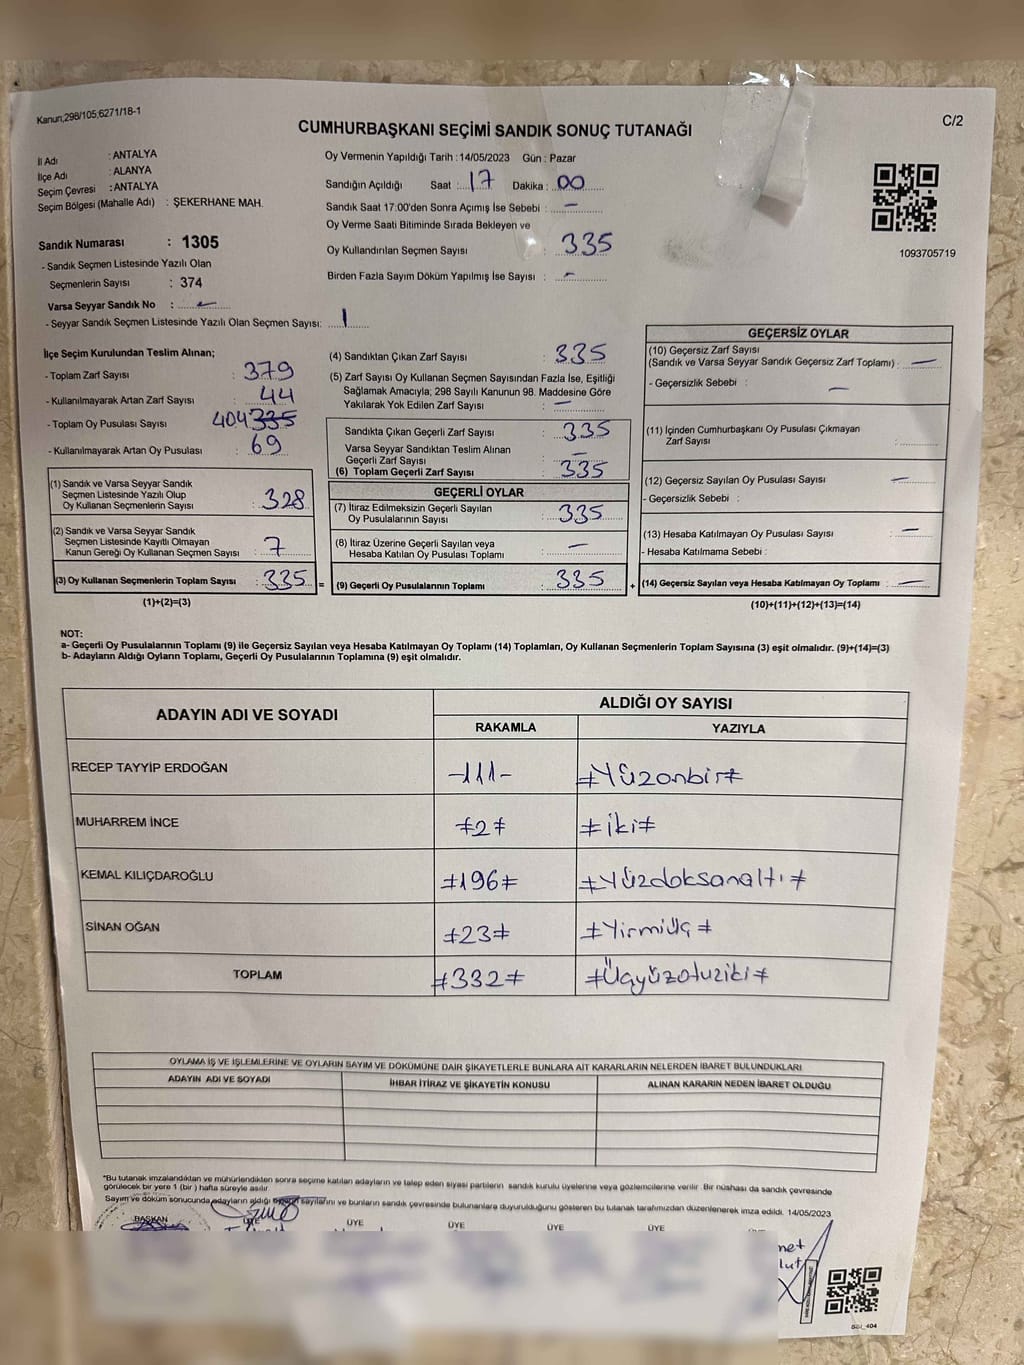 Kanun,298/105;6271/18-1
C/2
CUMHURBAŞKANI SEÇİMİ SANDIK SONUÇ TUTANAĞI
İl Adı : ANTALYA
İlçe Adı : ALANYA
Seçim Çevresi : ANTALYA
Seçim Bölgesi (Mahalle Adı) : ŞEKERHANE MAH.
Sandık Numarası : 1305
- Sandık Seçmen Listesinde Yazılı Olan
Seçmenlerin Sayısı : 374
Varsa Seyyar Sandık No : -
- Seyyar Sandık Seçmen Listesinde Yazılı Olan Seçmen Sayısı:
Oy Vermenin Yapıldığı Tarih : 14/05/2023 Gün : Pazar
Sandığın Açıldığı Saat : 17 Dakika : 00
Sandık Saat 17:00'den Sonra Açımış İse Sebebi : -
Oy Verme Saati Bitiminde Sırada Bekleyen ve
Oy Kullandırılan Seçmen Sayısı : 335
Birden Fazla Sayım Döküm Yapılmış İse Sayısı : -
1093705719
İlçe Seçim Kurulundan Teslim Alınan;
- Toplam Zarf Sayısı : 379
- Kullanılmayarak Artan Zarf Sayısı : 44
- Toplam Oy Pusulası Sayısı : 404 335
- Kullanılmayarak Artan Oy Pusulası : 69
(1) Sandık ve Varsa Seyyar Sandık
Seçmen Listesinde Yazılı Olup
Oy Kullanan Seçmenlerin Sayısı : 328
(2) Sandık ve Varsa Seyyar Sandık
Seçmen Listesinde Kayıtlı Olmayan
Kanun Gereği Oy Kullanan Seçmen Sayısı : 7
(3) Oy Kullanan Seçmenlerin Toplam Sayısı : 335 =
(1)+(2)=(3)
(4) Sandıktan Çıkan Zarf Sayısı : 335
(5) Zarf Sayısı Oy Kullanan Seçmen Sayısından Fazla İse, Eşitliği
Sağlamak Amacıyla; 298 Sayılı Kanunun 98. Maddesine Göre
Yakılarak Yok Edilen Zarf Sayısı : -
Sandıkta Çıkan Geçerli Zarf Sayısı : 335
Varsa Seyyar Sandıktan Teslim Alınan
Geçerli Zarf Sayısı : -
(6) Toplam Geçerli Zarf Sayısı : 335
GEÇERLİ OYLAR
(7) İtiraz Edilmeksizin Geçerli Sayılan
Oy Pusulalarının Sayısı : 335
(8) İtiraz Üzerine Geçerli Sayılan veya
Hesaba Katılan Oy Pusulası Toplamı : -
(9) Geçerli Oy Pusulalarının Toplamı : 335 +
GEÇERSİZ OYLAR
(10) Geçersiz Zarf Sayısı
(Sandık ve Varsa Seyyar Sandık Geçersiz Zarf Toplamı) : -
- Geçersizlik Sebebi : -
(11) İçinden Cumhurbaşkanı Oy Pusulası Çıkmayan
Zarf Sayısı :
(12) Geçersiz Sayılan Oy Pusulası Sayısı : -
- Geçersizlik Sebebi :
(13) Hesaba Katılmayan Oy Pusulası Sayısı : -
- Hesaba Katılmama Sebebi :
(14) Geçersiz Sayılan veya Hesaba Katılmayan Oy Toplamı : -
(10)+(11)+(12)+(13)=(14)
NOT:
a- Geçerli Oy Pusulalarının Toplamı (9) ile Geçersiz Sayılan veya Hesaba Katılmayan Oy Toplamı (14) Toplamları, Oy Kullanan Seçmenlerin Toplam Sayısına (3) eşit olmalıdır. (9)+(14)=(3)
b- Adayların Aldığı Oyların Toplamı, Geçerli Oy Pusulalarının Toplamına (9) eşit olmalıdır.
ADAYIN ADI VE SOYADI
ALDIĞI OY SAYISI
RAKAMLA YAZIYLA
RECEP TAYYİP ERDOĞAN -111- ≠Yüzonbir≠
MUHARREM İNCE ≠2≠ ≠iki≠
KEMAL KILIÇDAROĞLU ≠196≠ ≠Yüzdoksanaltı≠
SİNAN OĞAN ≠23≠ ≠Yirmiüç≠
TOPLAM ≠332≠ ≠Üçyüzotuziki≠
OYLAMA İŞ VE İŞLEMLERİNE VE OYLARIN SAYIM VE DÖKÜMÜNE DAİR ŞİKAYETLERLE BUNLARA AİT KARARLARIN NELERDEN İBARET BULUNDUKLARI
ADAYIN ADI VE SOYADI İHBAR İTİRAZ VE ŞİKAYETİN KONUSU ALINAN KARARIN NEDEN İBARET OLDUĞU
*Bu tutanak imzalandıktan ve mühürlendikten sonra seçime katılan adayların ve talep eden siyasi partilerin sandık kurulu üyelerine veya gözlemcilerine verilir. Bir nüshası da sandık çevresinde
görülecek bir yere 1 (bir ) hafta süreyle asılır.
Sayım ve döküm sonucunda adayların aldığı oyların sayılarını ve bunların sandık çevresinde bulunanlara duyurulduğunu gösteren bu tutanak tarafımızdan düzenlenerek imza edildi. 14/05/2023
BAŞKAN ÜYE ÜYE ÜYE ÜYE ÜYE